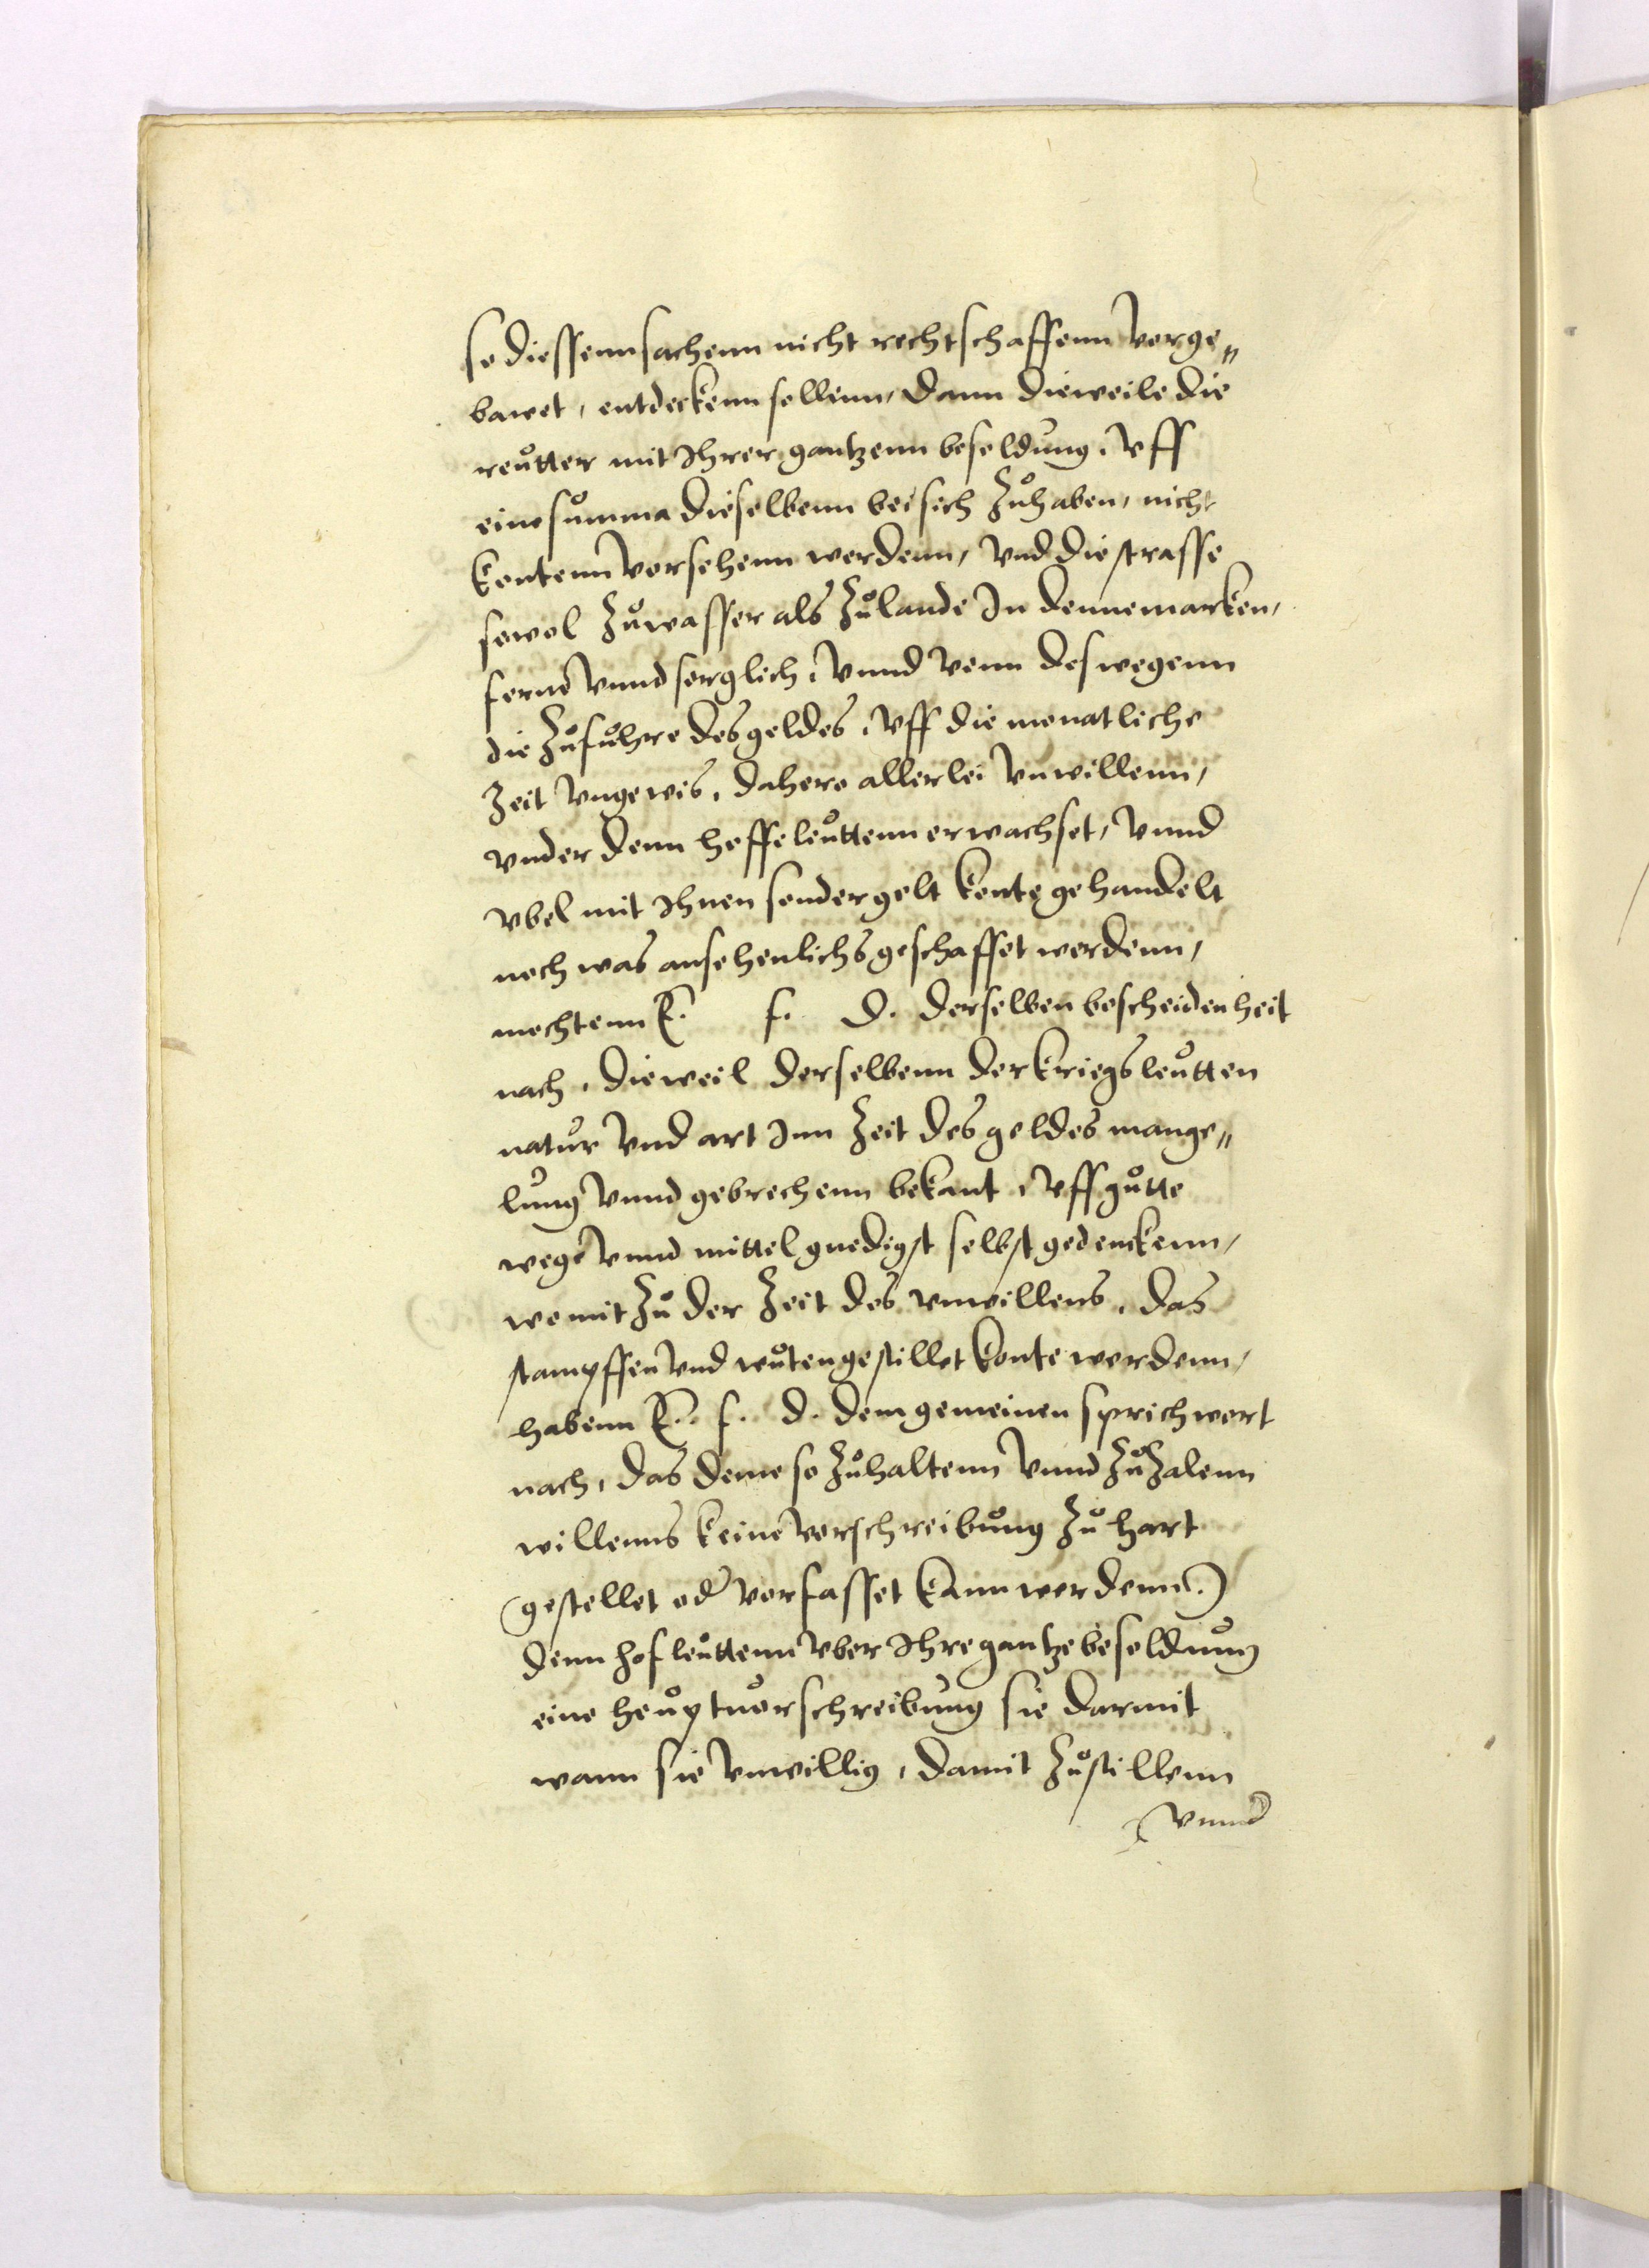 so diessenn sachenn nicht rechtschaffenn vorge„
bawet, entdeckenn sollenn, dann dieweile die
reutter mit Ihrer gantzenn besoldung, vff
eine summa dieselbenn bei sich zuhaben, nicht
kontenn versehenn werdenn, vnd die strasse
sowol zuwasser als zulande In dennemarken,
ferne vnnd sorglich, vnnd vonn deswegenn
die zufuhre des geldes, vff die monatliche
zeit vngewis, dahero allerlei vnwillenn,
vnder denn hoffeleuttenn erwachset, vnnd
vbel mit Ihnen sonder gelt konte gehandelt
noch was ansehenlichs geschaffet werdenn,
mochtenn E. f. D. derselben bescheidenheit
nach, dieweil derselbenn der kriegsleutten
natur vnd art Inn zeit des geldes mange„
lung vnnd gebrechenn bekant, vff gutte
wege vnnd mittel gnedigst selbst gedenckenn,
womit zu der zeit des vnwillens, das
stampffen vnd wuten gestillet konte werdenn,
habenn E. f. D. dem gemeinen sprichwort
nach, das deme so zuhaltenn vnnd zuzalenn
willenns keine vorschreibung zu hart
gestellet oder vorfasset kann werdenn)
denn hofleuttenn vber Ihre gantze besoldung
eine heuptvorschreibung sie darmit
wann sie vnwillig, damit zustillenn
vnnd